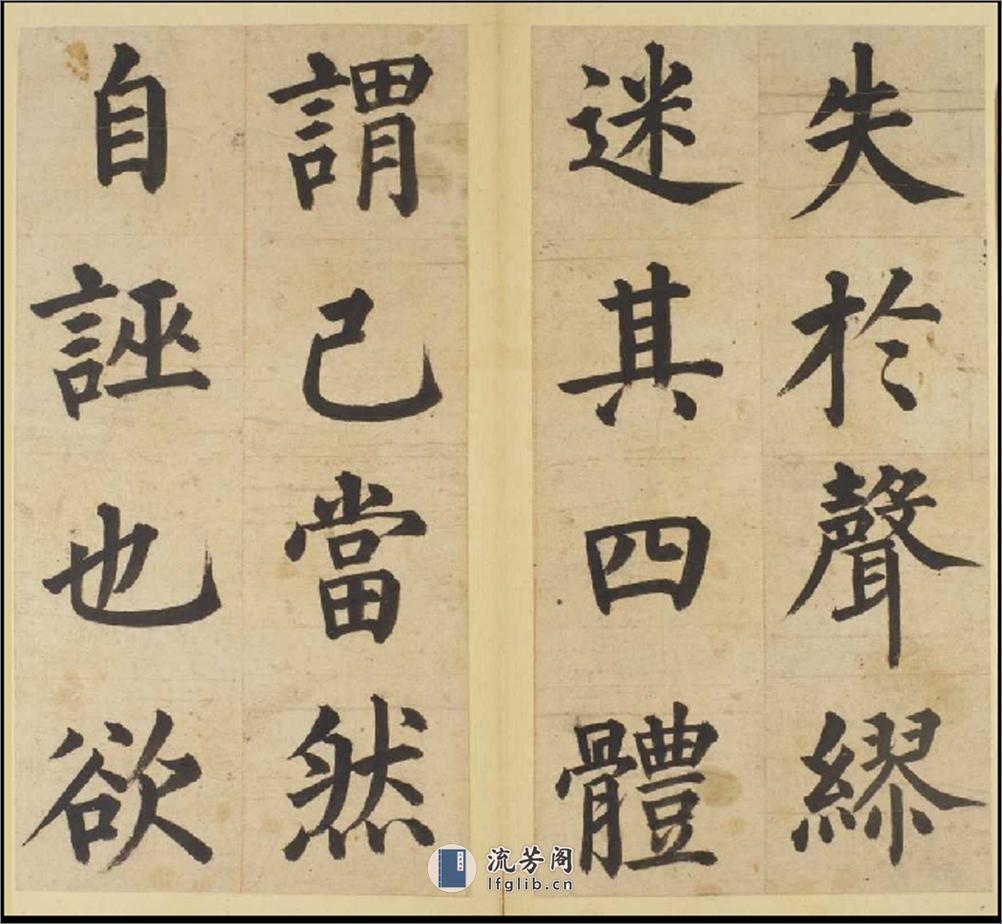 失於聲繆
迷其四體
謂己當然
自誣也欲
流芳阁
lfglib.cn